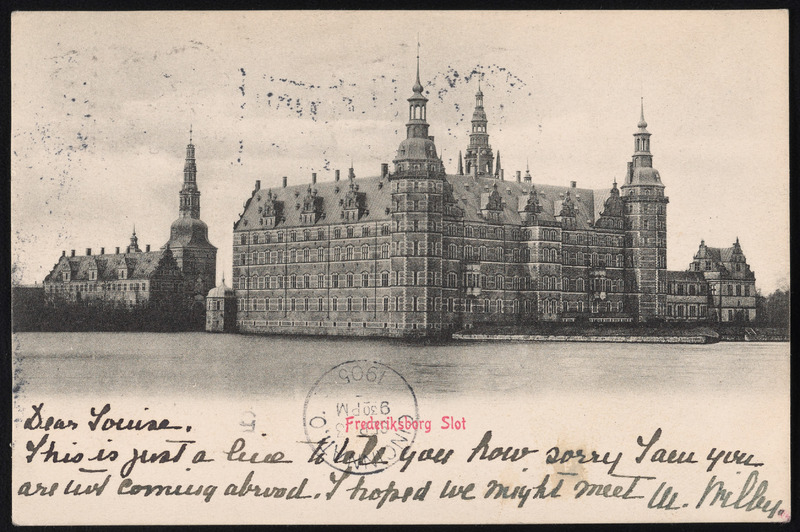 Frederiksborg Slot
1905
930PM
Dear Louise.
This is just a line to tell you how sorry I am you
are not coming abroad. I hoped we might meet M. Wilby.